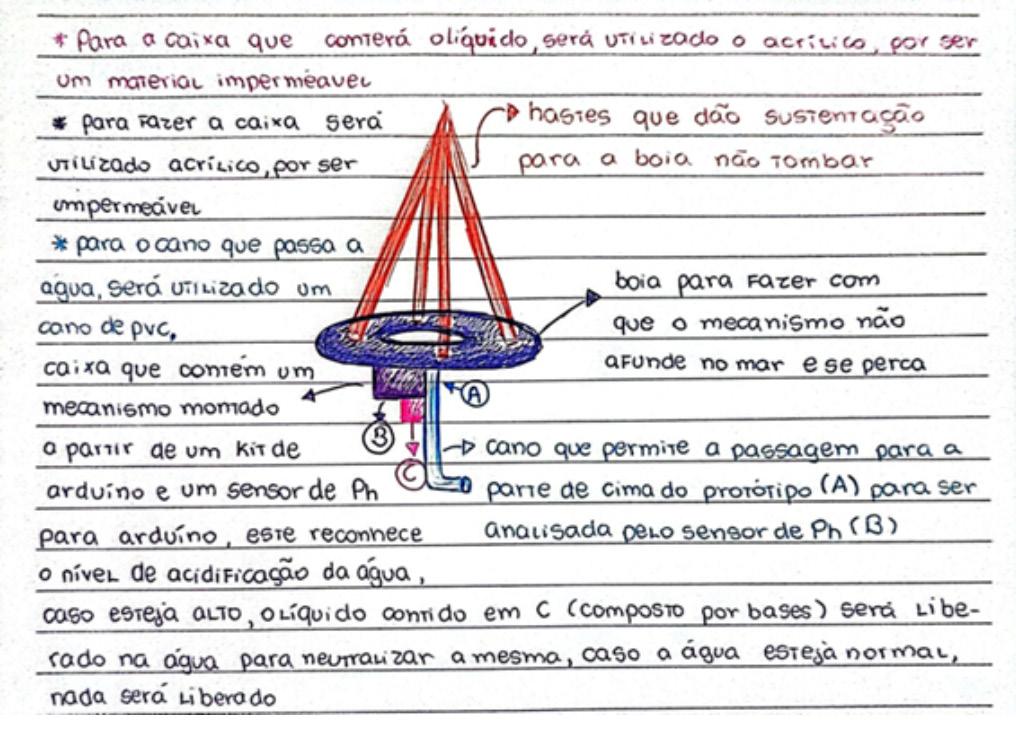 * Para a caixa que conterá o líquido, será utilizado o acrílico, por ser
um material imperméavel
* para fazer a caixa será
utilizado acrílico, por ser
impermeável
* para o cano que passa a
água, será utilizado um
cano de pvc,
hastes que dão sustentação
para a boia não tombar
boia para fazer com
que o mecanismo não
afunde no mar e se perca
caixa que contém um
mecanismo montado
a partir de um kit de
arduíno e um sensor de Ph
para arduíno, este reconhece
o nível de acidificação da água,
A
B
C
cano que permite a passagem para a
parte de cima do protótipo (A) para ser
analisada pelo sensor de Ph (B)
caso esteja alto, o líquido contido em C (composto por bases) será libe-
rado na água para neutralizar a mesma, caso a água esteja normal,
nada será liberado